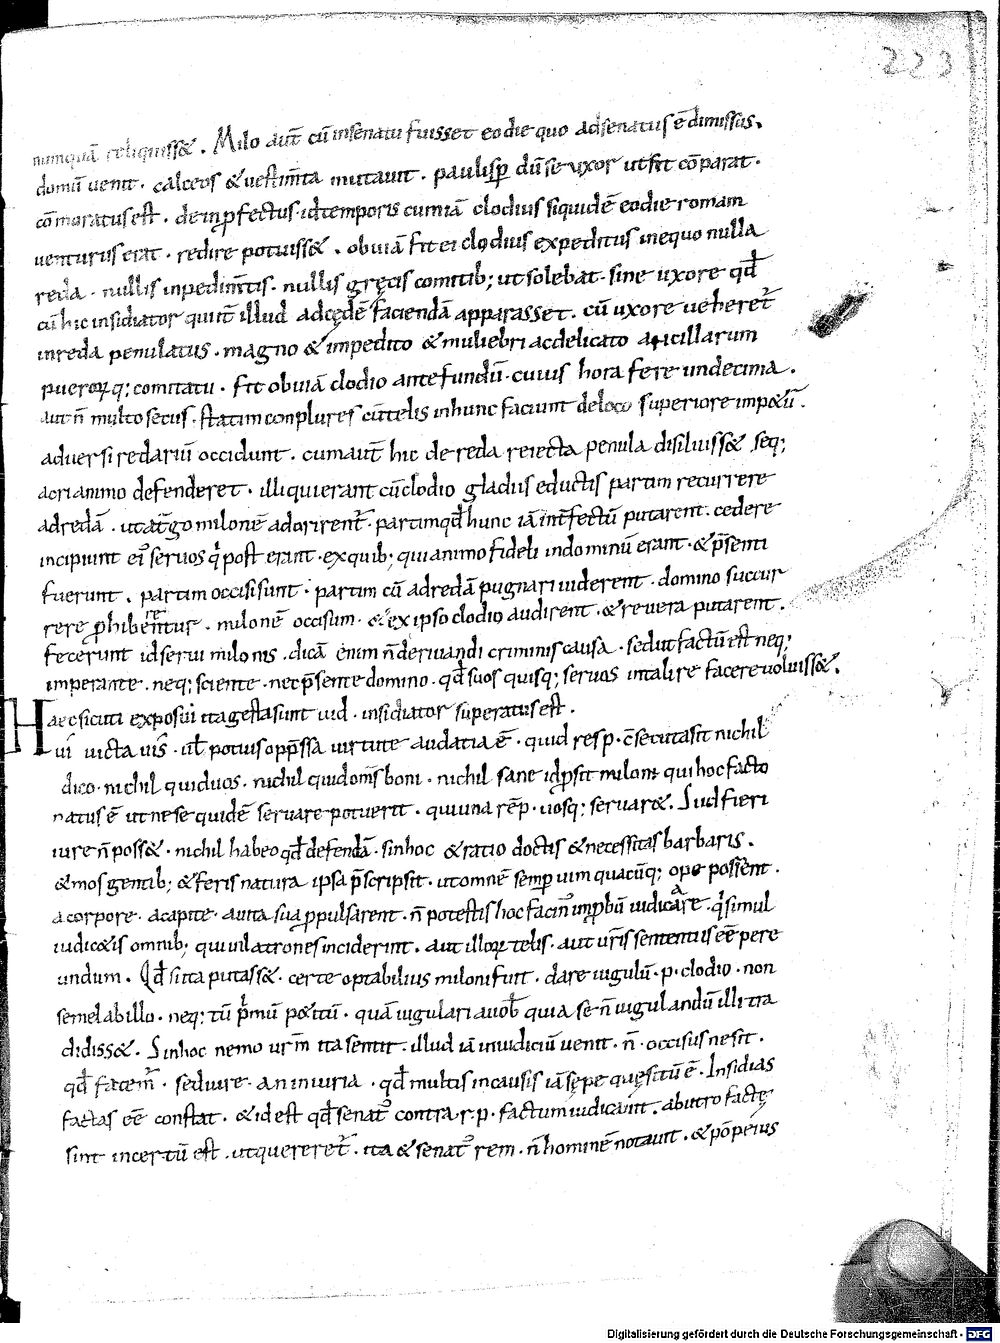 223
numquā reliquiss&. Milo aut̄ cū insenatu fuisset eodie quo adsenatus ē dimissus.
domū uenit. calceos & uestim̄ta mutauit. paulisp̱ dū se uxor ut fit cōparat.
cōmoratus est. dein p̱fectus. id temporis cum iā clodius siquidē eodie romam
uenturus erat. redire potuiss&. obuiā fit ei clodius expeditus inequo nulla
reda. nullis inpedim̄tis. nullis gręcis comitib; ut solebat. sine uxore qđ
cū hic insidiator qui it̄ illud adcędē faciendā apparasset. cū uxore ueheret̄
inreda penulatus. magno & impedito & muliebri acdelicato ancillarum
pueroꝝq; comitatu. fit obuiā clodio ante fundū. cuius hora fere undecima.
aut n̄ multo secus. statim conplures cū telis inhunc faciunt deloco superiore imp&ū.
aduersi redariū occidunt. cum aut̄ hic dereda reiecta penula disiluiss& seq;
acri animo defenderet. illi qui erant cū clodio gladiis eductis partim recurrere
adredā. ut at̄go milonē adorirent̄. partim qđ hunc iā int̄fectū putarent. cedere
incipiunt ei᷒ seruos q̇ post erant. exquib; qui animo fideli indominū erant. & p̄senti
fuerunt. partim occisi sunt. partim cū adredā pugnari uiderent. domino succur
rere ꝓhiberentur. milonē occisum. & ex ipso clodio audirent. & reuera putarent.
fecerunt id serui milonis. dicā enim n̄ deriuandi criminis causa. sed ut factū est neq;
imperante. neq; sciente. nec p̄sente domino. qđ suos quisq; seruos intali re facere uoluiss&.
Haec sicuti exposui ita gesta sunt iud. insidiator superatus est.
ui uicta uis. uł potius opp̄ssa uirtute audatia ē. quid resp. c̄secuta sit nichil
dico. nichil quid uos. nichil quid om̄s boni. nichil sane id p̱sit miloni qui hoc facto
natus ē ut ne se quidē seruare potuerit. quiuna rēp. uosq; seruar&. Si id fieri
iure n̄ poss&. nichil habeo qđ defendā. sin hoc & ratio doctis & necessitas barbaris.
& mos gentib; & feris natura ipsa p̄scripsit. ut omnē semp̱ uim quacūq; ope possent.
a corpore. a capite. a uita sua ꝓpulsarent. n̄ potestis hoc facin᷒ inp̱bū iudicare. q̇ simul
iudic&is omnib; qui inlatrones inciderint. aut illoꝝ telis. aut ur̄is sententiis eē pere
undum. Qđ si ita putass&. certe optabilius miloni fuit. dare iugulū. p. clodio. non
semel ab illo. neq; tū p̍mū p&itū. quā iugulari a uob̄ quia se n̄ iugulandū illi tra
didiss&. Sin hoc nemo ur̄m ita sentit. illud iā iniudiciū uenit. n̄. occisus ne sit.
qđ fatem̄. sed iure. an iniuria. qđ multis incausis iā sępe quęsitū ē. Insidias
factas eē constat. & id est qđ senat᷒ contra. r. p. factum iudicauit. ab utro factę
sint incertū est. ut quereret̄. ita & senat᷒ rem. n̄ hominē notauit. & pōpeius
Digitalisierung gefördert durch die Deutsche Forschungsgemeinschaft - DFG